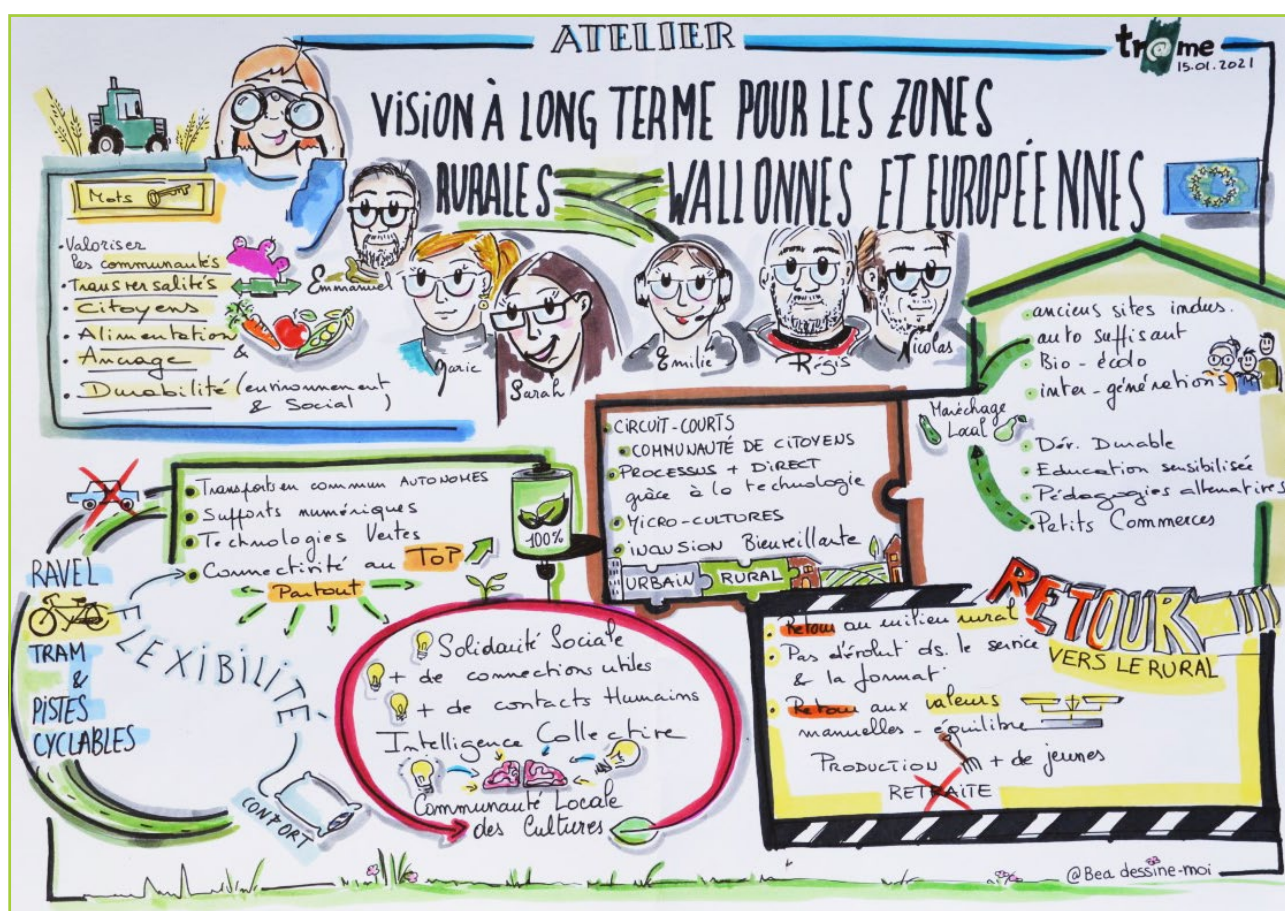 ATELIER
tr@me
15.01.2021
VISION À LONG TERME POUR LES ZONES
RURALES WALLONNES ET EUROPÉENNES
Mots
• Valoriser
les communautés
• Transversalités
• Citoyens
• Alimentation
&
• Ancrage
• Durabilité (environnement
& Social)
Emmanuel
Marie
Sarah
Emilie
Régis
Nicolas
• anciens sites indus.
• auto suffisant
• Bio-écolo
• inter-générations
Maréchage
Local
• Dév. Durable
• Education sensibilisée
• Pédagogies alternatives
• Petits Commerces
• CIRCUIT-COURTS
• COMMUNAUTÉ DE CITOYENS
• PROCESSUS + DIRECT
grâce à la technologie
• MICRO-CULTURES
• INCLUSION Bienveillante
URBAIN RURAL
• Transports en commun AUTONOMES
• Supports numériques
• Technologies Vertes
• Connectivité au TOP
Partout
100%
RAVEL
TRAM
&
PISTES
CYCLABLES
FLEXIBILITÉ
CONFORT
Solidarité Sociale
+ de connections utiles
+ de contacts Humains
Intelligence Collective
Communauté Locale
des Cultures
RETOUR
VERS LE RURAL
• Retour au milieu rural
• Pas d'évolut° ds. le service
& la format°
• Retour aux valeurs
manuelles - équilibre
PRODUCTION + de jeunes
RETRAITE
@Bea dessine-moi